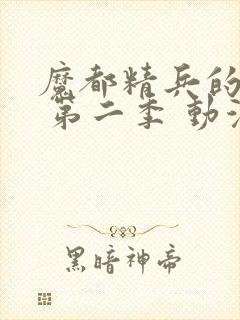 魔都精兵的
第二季 動
黑暗神帝